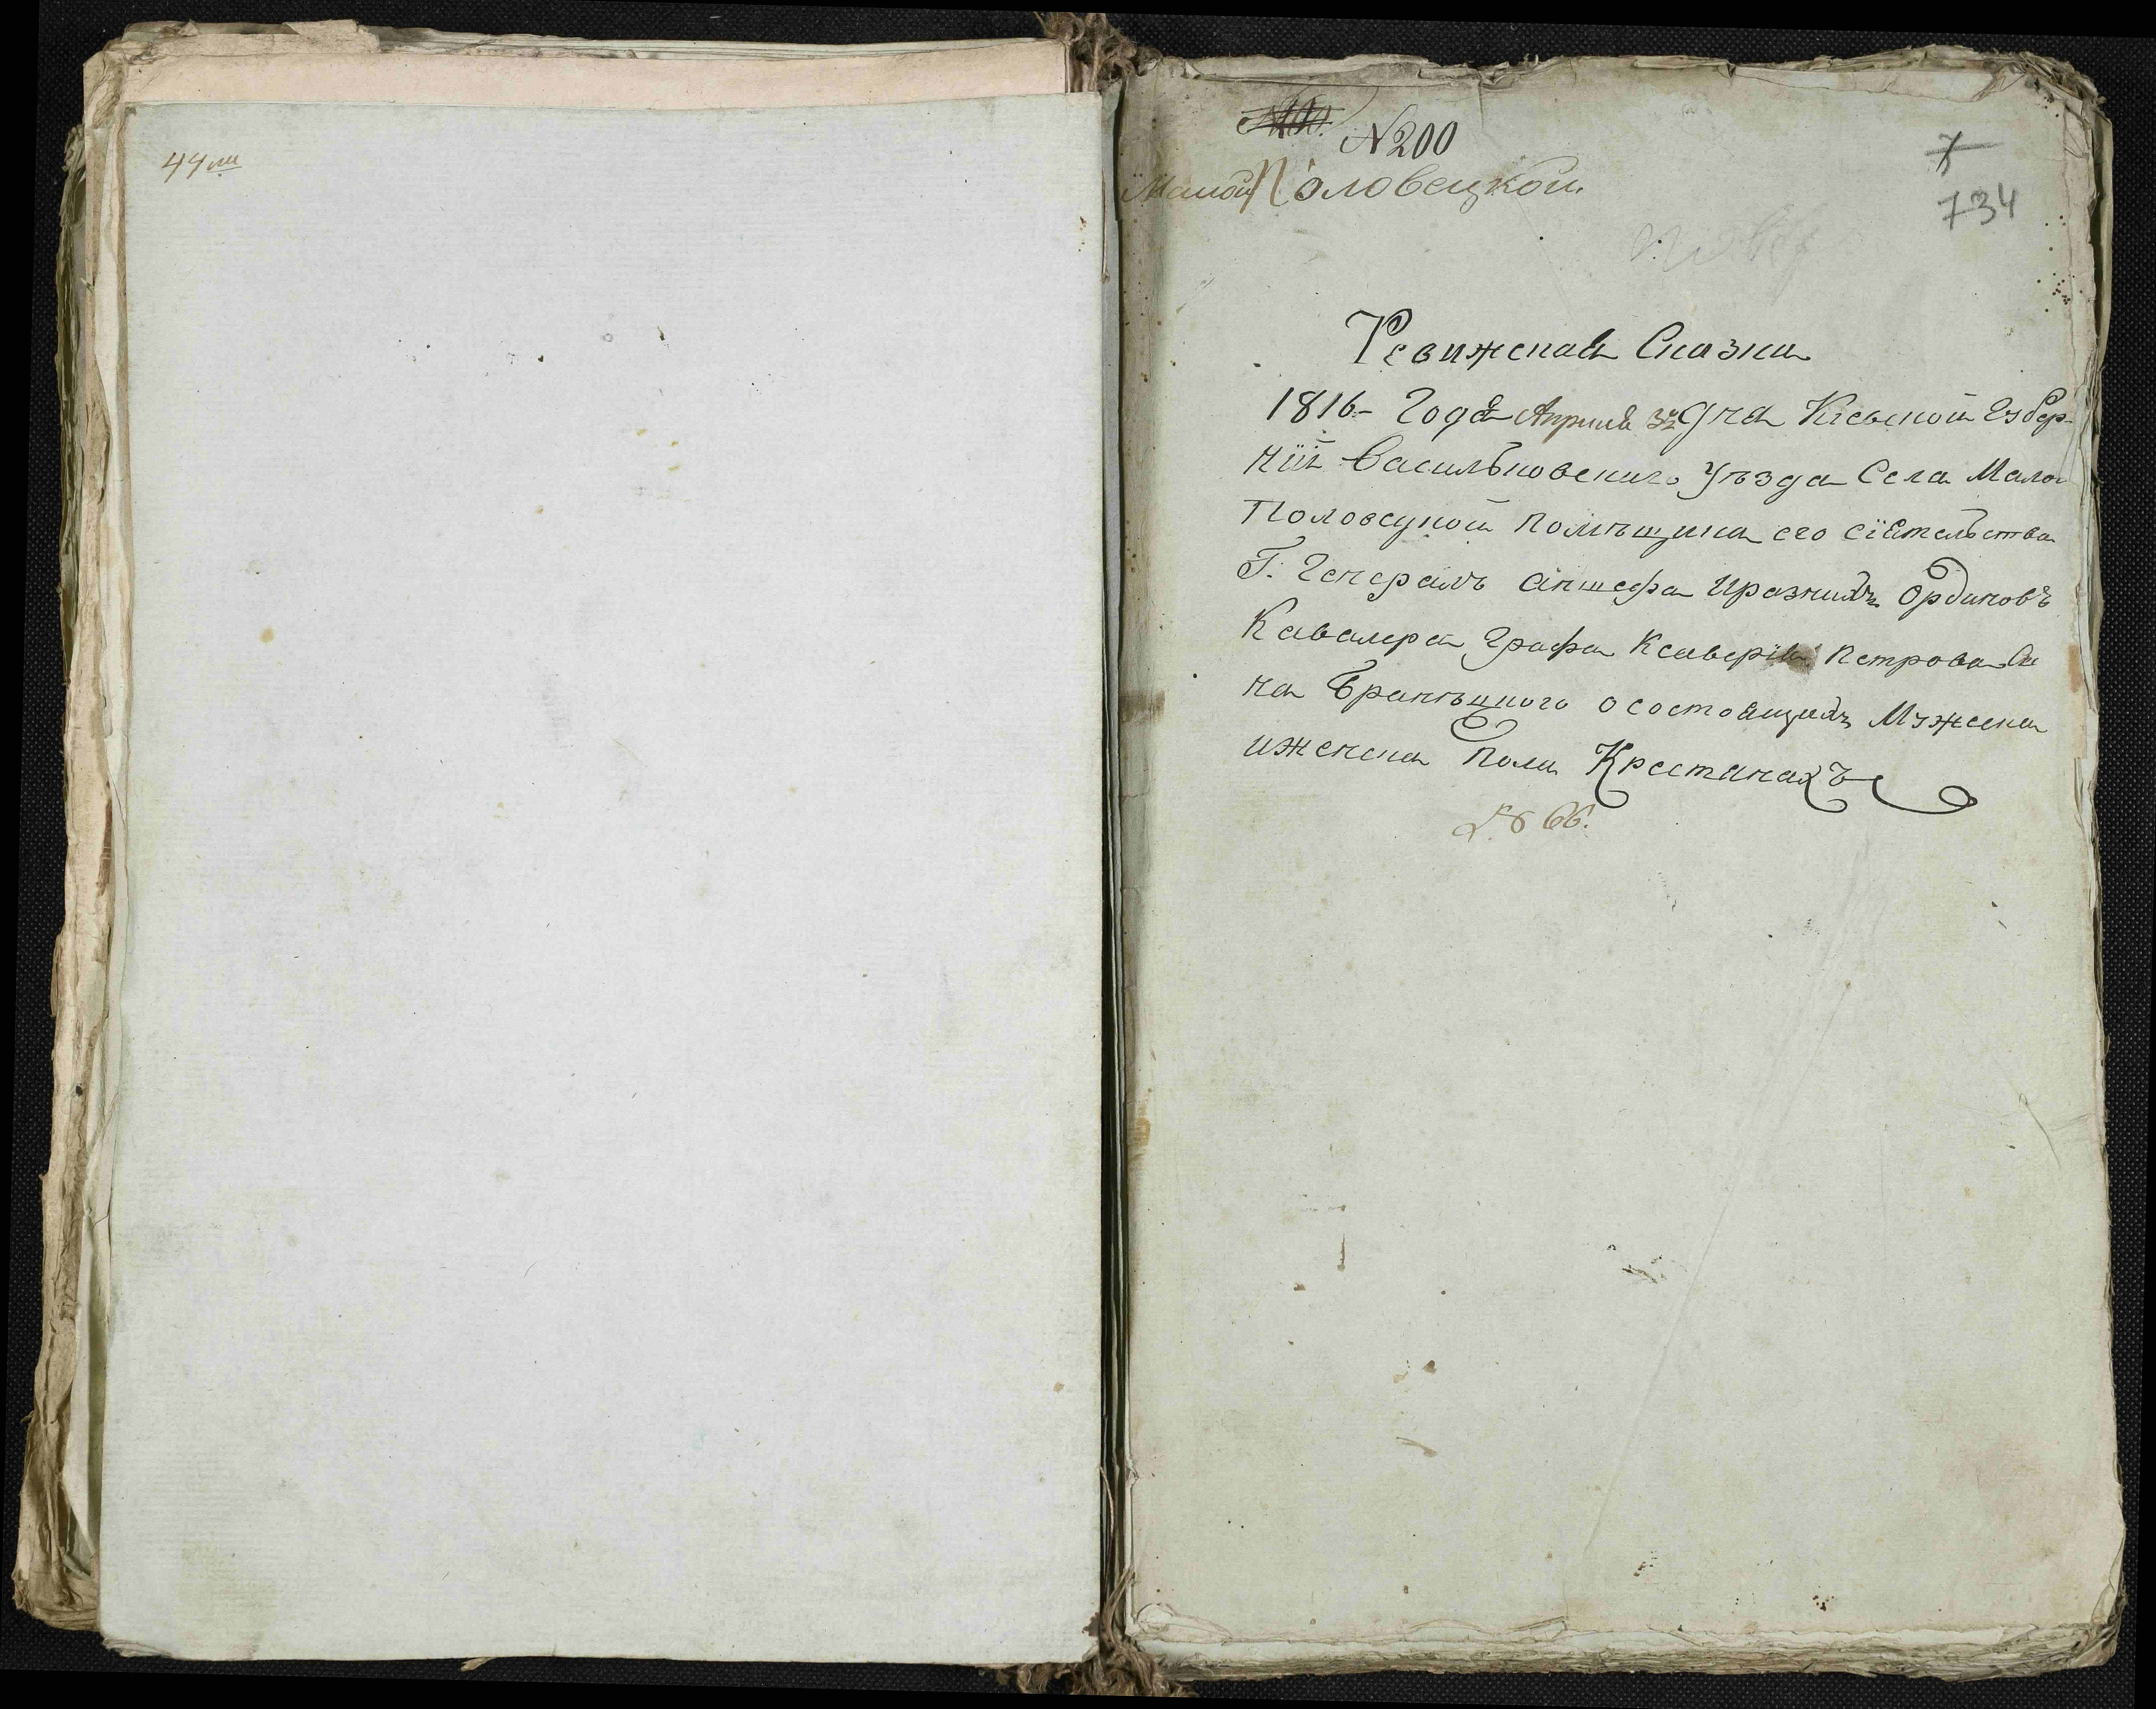 44 ли
№ 200
Малой Половецкой.
7
734
Ревижская Сказка
1816 Года Априля 3го Дня Кіевской Губер-
ніи Васильковского Уѣзда Села Малой
Половецкой помѣщика его сіятельства
Г. Генералъ аншефа иразнихъ Ординовъ
Кавалера Графа Ксаверія Петрова Си
на Браницкого осостоящихъ Мужеска
иженска пола Крестянахъ